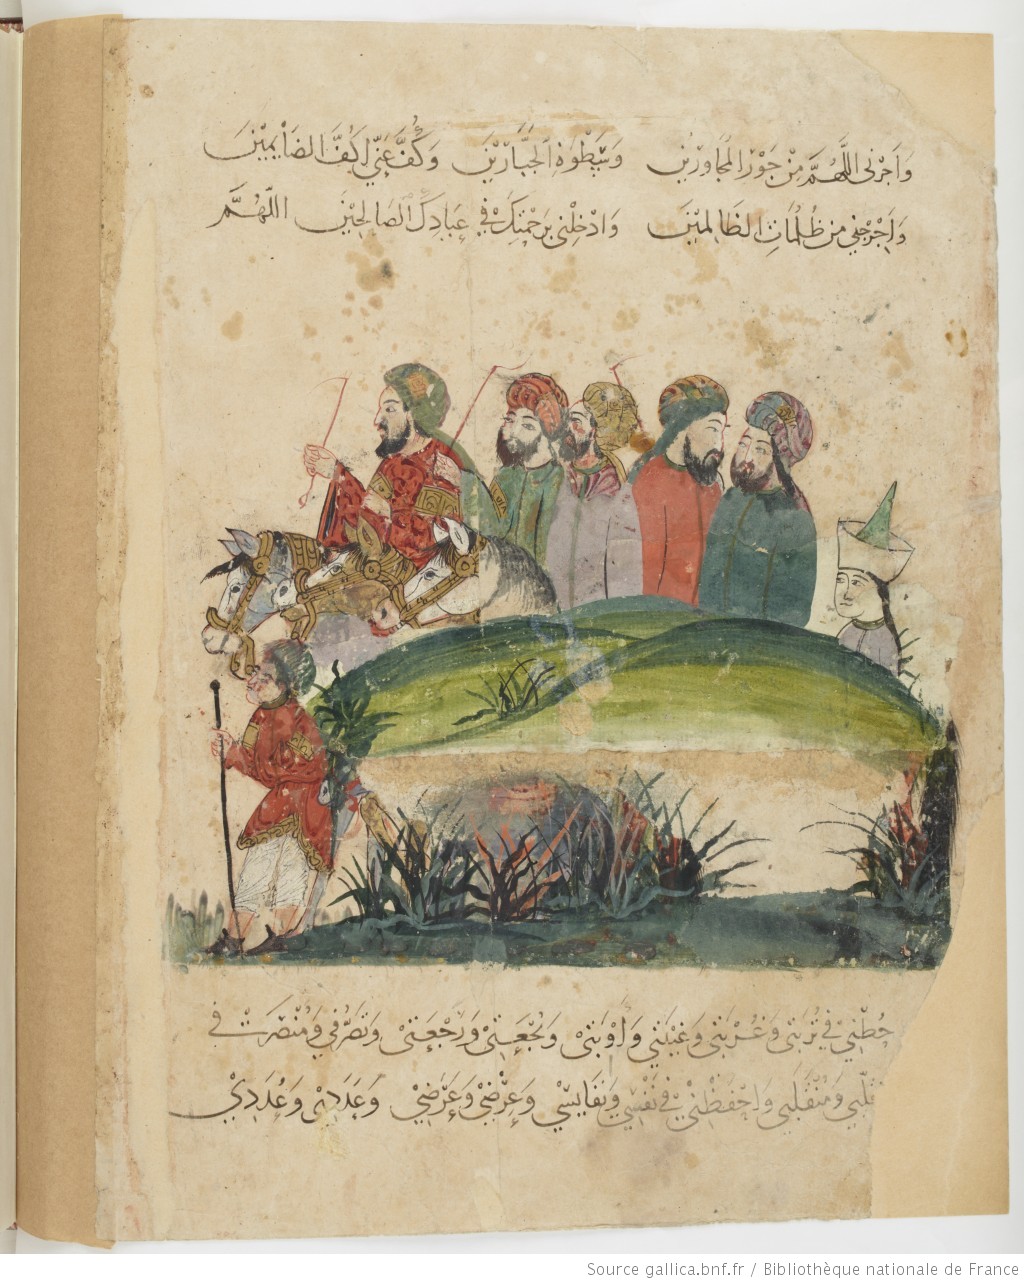 وَاَجِرْنى اللَّهُمَّ مِنْ جَوْرِ المُجَاوِرِيْنَ وَسَطْوَةِ الجَبَّارِيْنَ وَكُفَّ عَنّىْ اَكُفَّ الضَاْئِمِيْنَ
وَاَخْرِجْنِي مِنْ ظُلُمَاتِ الظَالِمِيْنَ وَادْخِلْنِى بِرَحْمَتِكَ فِي عِبَادِكَ الصَالِحِيْنَ اللَّهُمَّ
حُطْنِيْ فِيْ تُرْبَتِى وَغُرْبَتِى وَغَيْبَتِي وَاَوْبَتِىْ وَنُجْعَتِىْ وَرَجْعَتِىْ وَتَصَرُّفِي وَمُنْصَرَفِىْ
وَمُنْقَلَبِي وَاحْفَظْنِىْ فِيْ نَفْسِيْ وَنَفَايِسِيْ وَعِرْضِيْ وَعَرَضِيْ وَعَدَدِىْ وَعُدَدِيْ
Source gallica.bnf.fr / Bibliothèque nationale de France